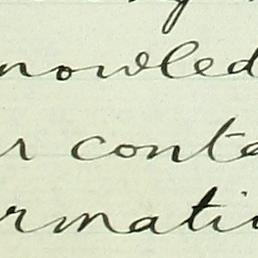 nowled
r conte
rmati